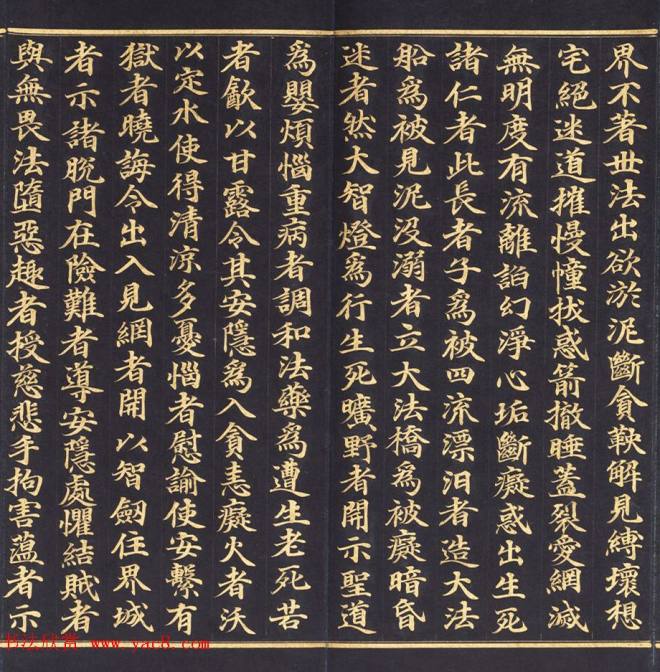 界不著世法出欲於泥斷貪鞅解見縛壞想
宅絕迷道摧慢幢拔惑箭撤睡蓋裂愛網滅
無明度有流離諂幻淨心垢斷癡惑出生死
諸仁者此長者子爲被四流漂汨者造大法
船爲被見泥沒溺者立大法橋爲被癡暗昏
迷者然大智燈爲行生死曠野者開示聖道
爲嬰煩惱重病者調和法藥爲遭生老死苦
者㱃以甘露令其安隱爲入貪恚癡火者沃
以定水使得清涼多憂惱者慰諭使安繫有
獄者曉誨令出入見網者開以智劒住界城
者示諸脫門在險難者導安隱處懼結賊者
與無畏法墮惡趣者授慈悲手拘害蘊者示
书法欣赏 www.yac8.com